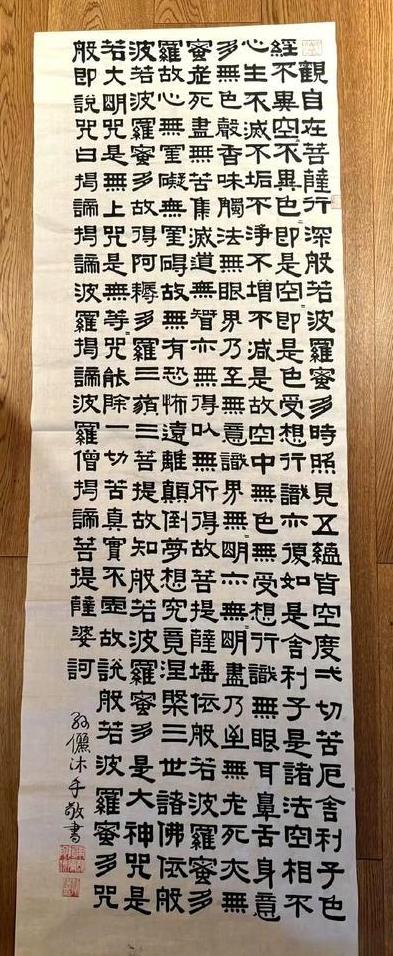 觀自在菩薩行深般若波羅蜜多時照見五蘊皆空度弌切苦厄舍利子色
經不異空〻不異色〻即是空〻即是色受想行識亦復如是舍利子是諸法空相不
心生不滅不垢不淨不增不減是故空中無色無受想行識無眼耳鼻舌身意
多無色聲香味觸法無眼界乃至無意識界無〻明亦無〻明盡乃至無老死亦無
蜜老死盡無苦集滅道無智亦無得以無所得故菩提薩埵依般若波羅蜜多
羅故心無罣礙無罣碍故無有恐怖遠離顛倒夢想究竟涅槃三世諸佛依般
波若波羅蜜多故得阿耨多羅三藐三菩提故知般若波羅蜜多是大神咒是
若大明咒是無上咒是無等〻咒能除一切苦真實不虛故說般若波羅蜜多咒
般即說咒曰揭諦揭諦波羅揭諦波羅僧揭諦菩提薩婆訶
孙儷沐手敬書